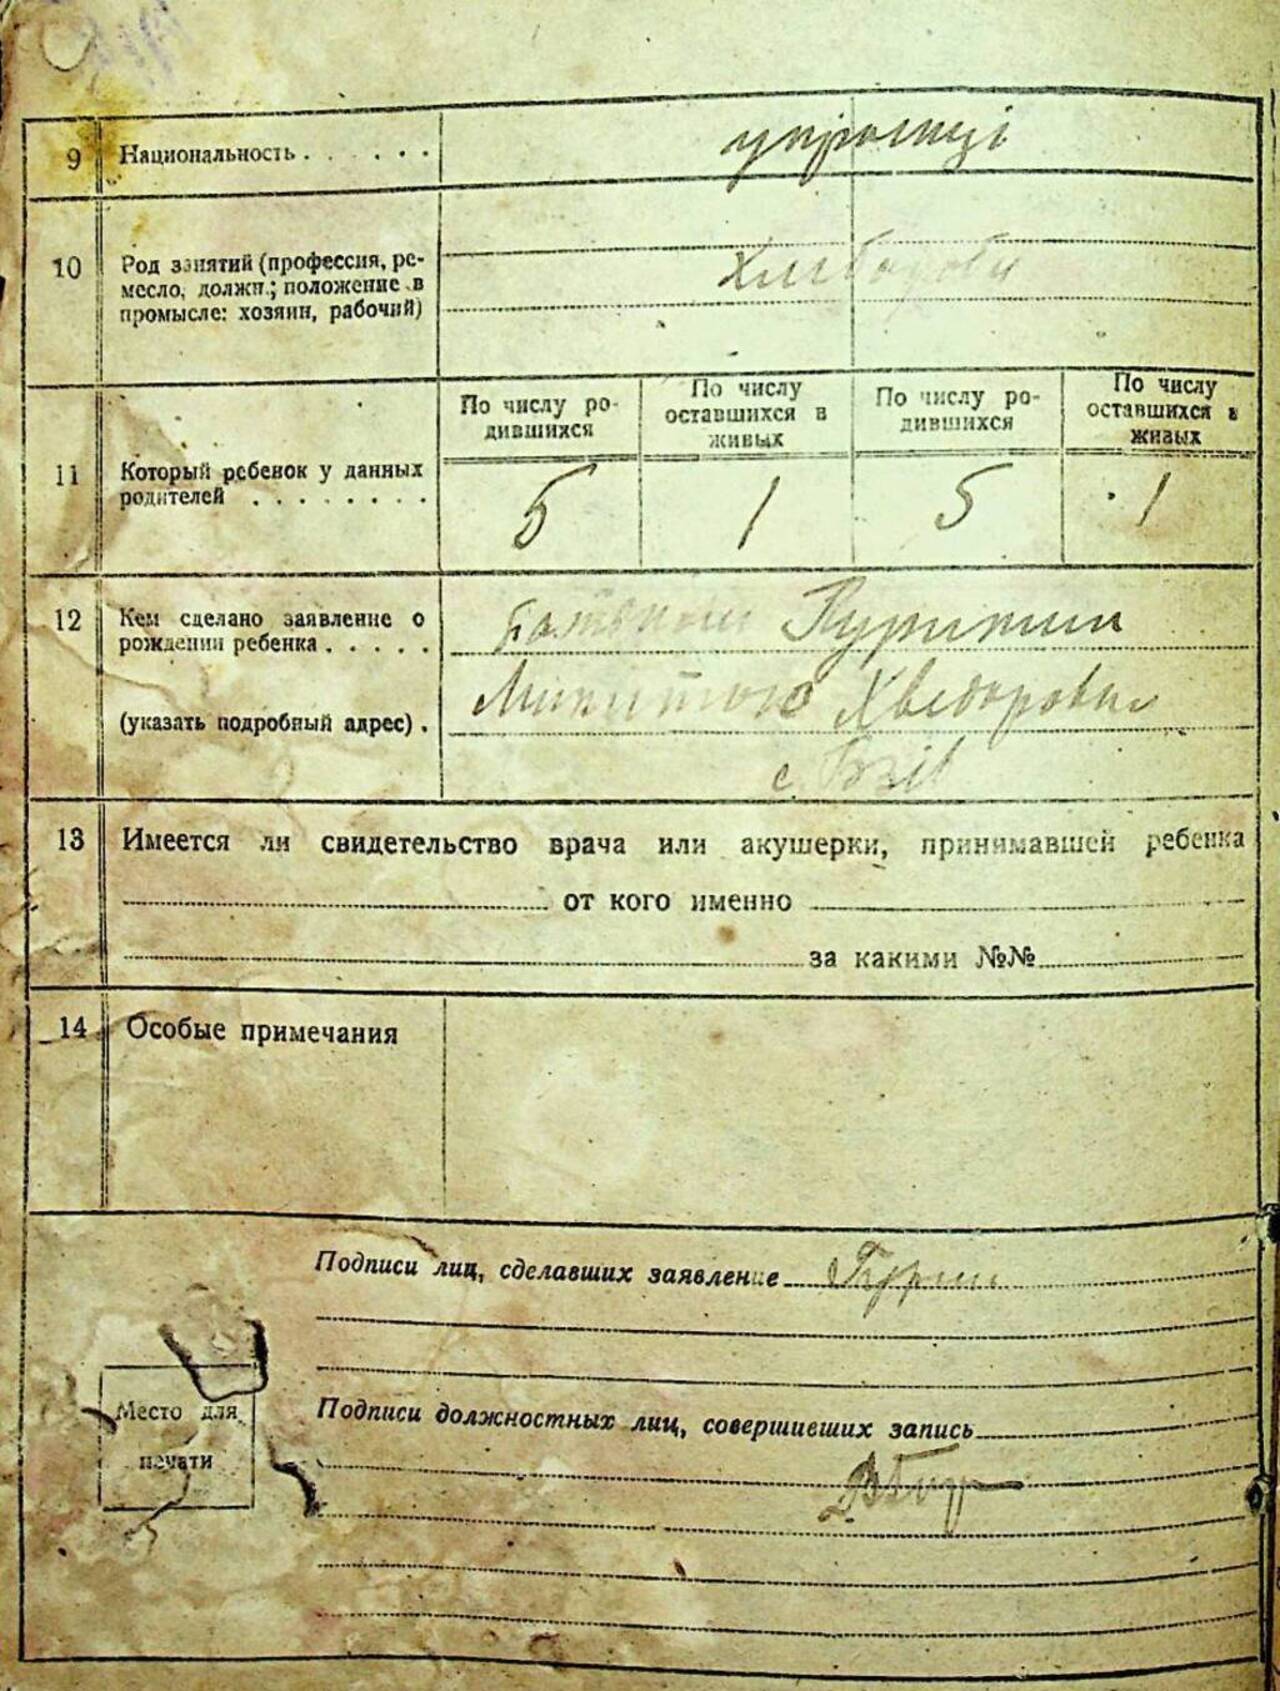 9 Национальность . . . . . . українці
10 Род занятий (профессия, ре-
месло, должн.; положение в
промысле: хозяин, рабочий)
По числу ро-
дившихся
По числу
оставшихся в
живых
По числу ро-
дившихся
По числу
оставшихся в
живых
11 Который ребенок у данных
родителей . . . . . . . .
5 1 5 1
12 Кем сделано заявление о
рождении ребенка . . . . .
(указать подробный адрес) .
Микитою Хведоровим
с.
13 Имеется ли свидетельство врача или акушерки, принимавшей ребенка
от кого именно
за какими №№
14 Особые примечания
Подписи лиц, сделавших заявление
Место для
печати
Подписи должностных лиц, совершивших запись